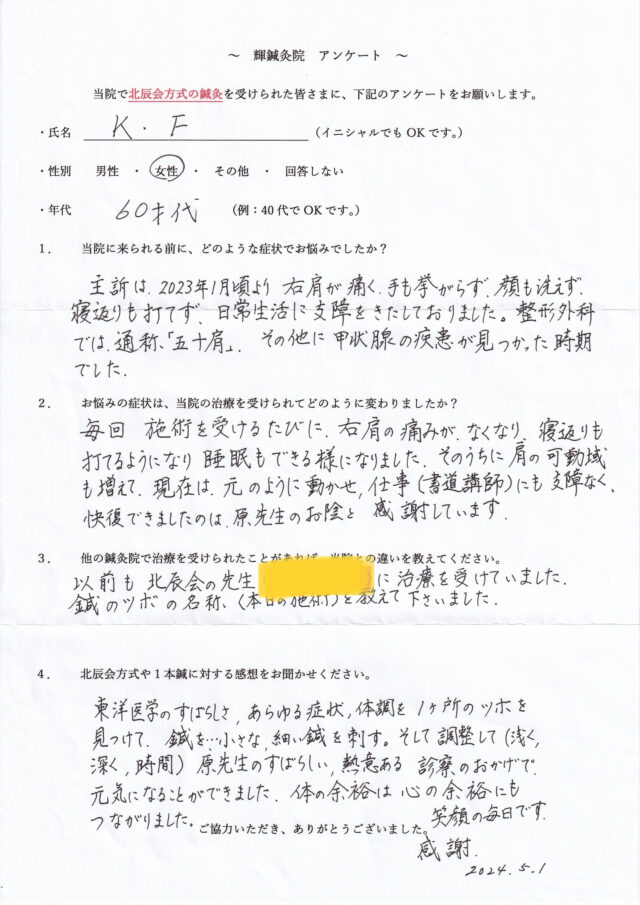 ～ 輝鍼灸院 アンケート ～
当院で北辰会方式の鍼灸を受けられた皆さまに、下記のアンケートをお願いします。
・氏名 K.F (イニシャルでもOKです。)
・性別 男性 ・ 女性 ・ その他 ・ 回答しない
・年代 60才代 (例：40代でOKです。)
1. 当院に来られる前に、どのような症状でお悩みでしたか？
主訴は、2023年1月頃より右肩が痛く、手も挙がらず、顔も洗えず、
寝返りも打てず、日常生活に支障をきたしておりました。整形外科
では、通称、「五十肩」、その他に甲状腺の疾患が見つかった時期
でした。
2. お悩みの症状は、当院の治療を受けられてどのように変わりましたか？
毎回 施術を受けるたびに、右肩の痛みが、なくなり、寝返りも
打てるようになり睡眠もできる様になりました。そのうちに肩の可動域
も増えて、現在は、元のように動かせ、仕事(書道講師)にも支障なく、
快復できましたのは、原先生のお陰と 感謝しています。
3. 他の鍼灸院で治療を受けられたことがあれば、当院との違いを教えてください。
以前も北辰会の先生 に治療を受けていました。
鍼のツボの名称、(本日の施術)を教えて下さいました。
4. 北辰会方式や1本鍼に対する感想をお聞かせください。
東洋医学のすばらしさ、あらゆる症状、体調を1ヶ所のツボを
見つけて、鍼を…小さな、細い鍼を刺す。そして調整して(浅く、
深く、時間)原先生のすばらしい、熱意ある 診療のおかげで、
元気になることができました。体の余裕は心の余裕にも
つながりました。 笑顔の毎日です。
ご協力いただき、ありがとうございました。
感謝.
2024.5.1